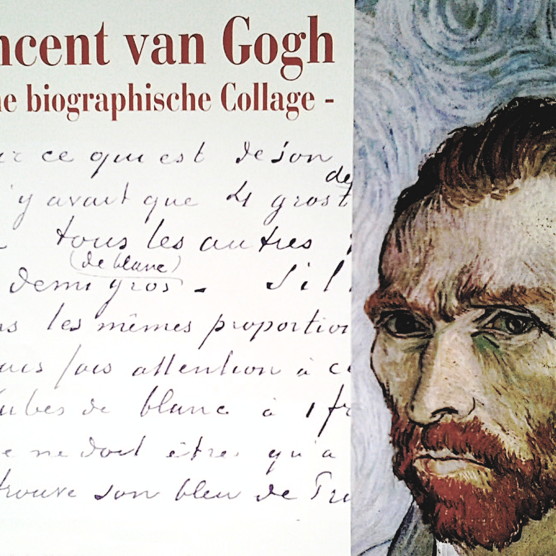 ncent van Gogh
ne biographische Collage -
ce qui est de son
de
'y avait que 4 gros
tous les autres
(de blanc)
demi gros - S'il
les mêmes proportion
fais attention à c
tubes de blanc à 1 fr
ne doit être qu'a
trouve son bleu de Pru